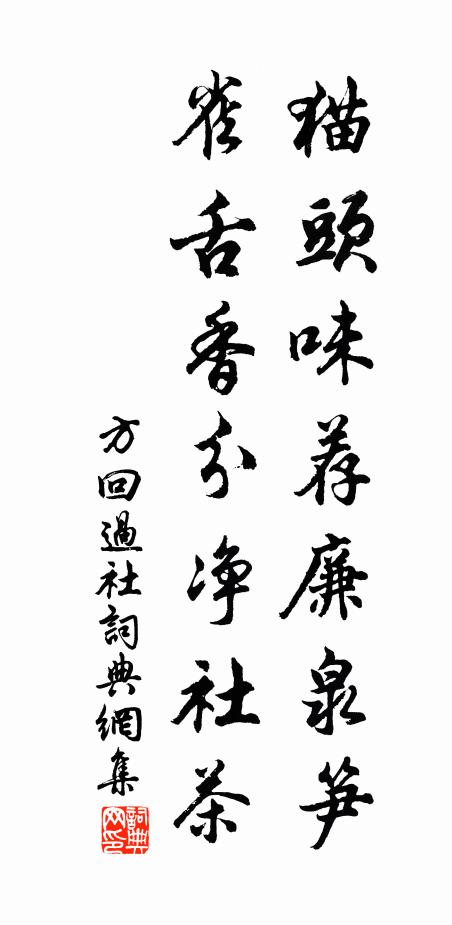 猫頭味荐廉泉笋
雀舌香分净社茶
方回過社詞典網集
詞典网印